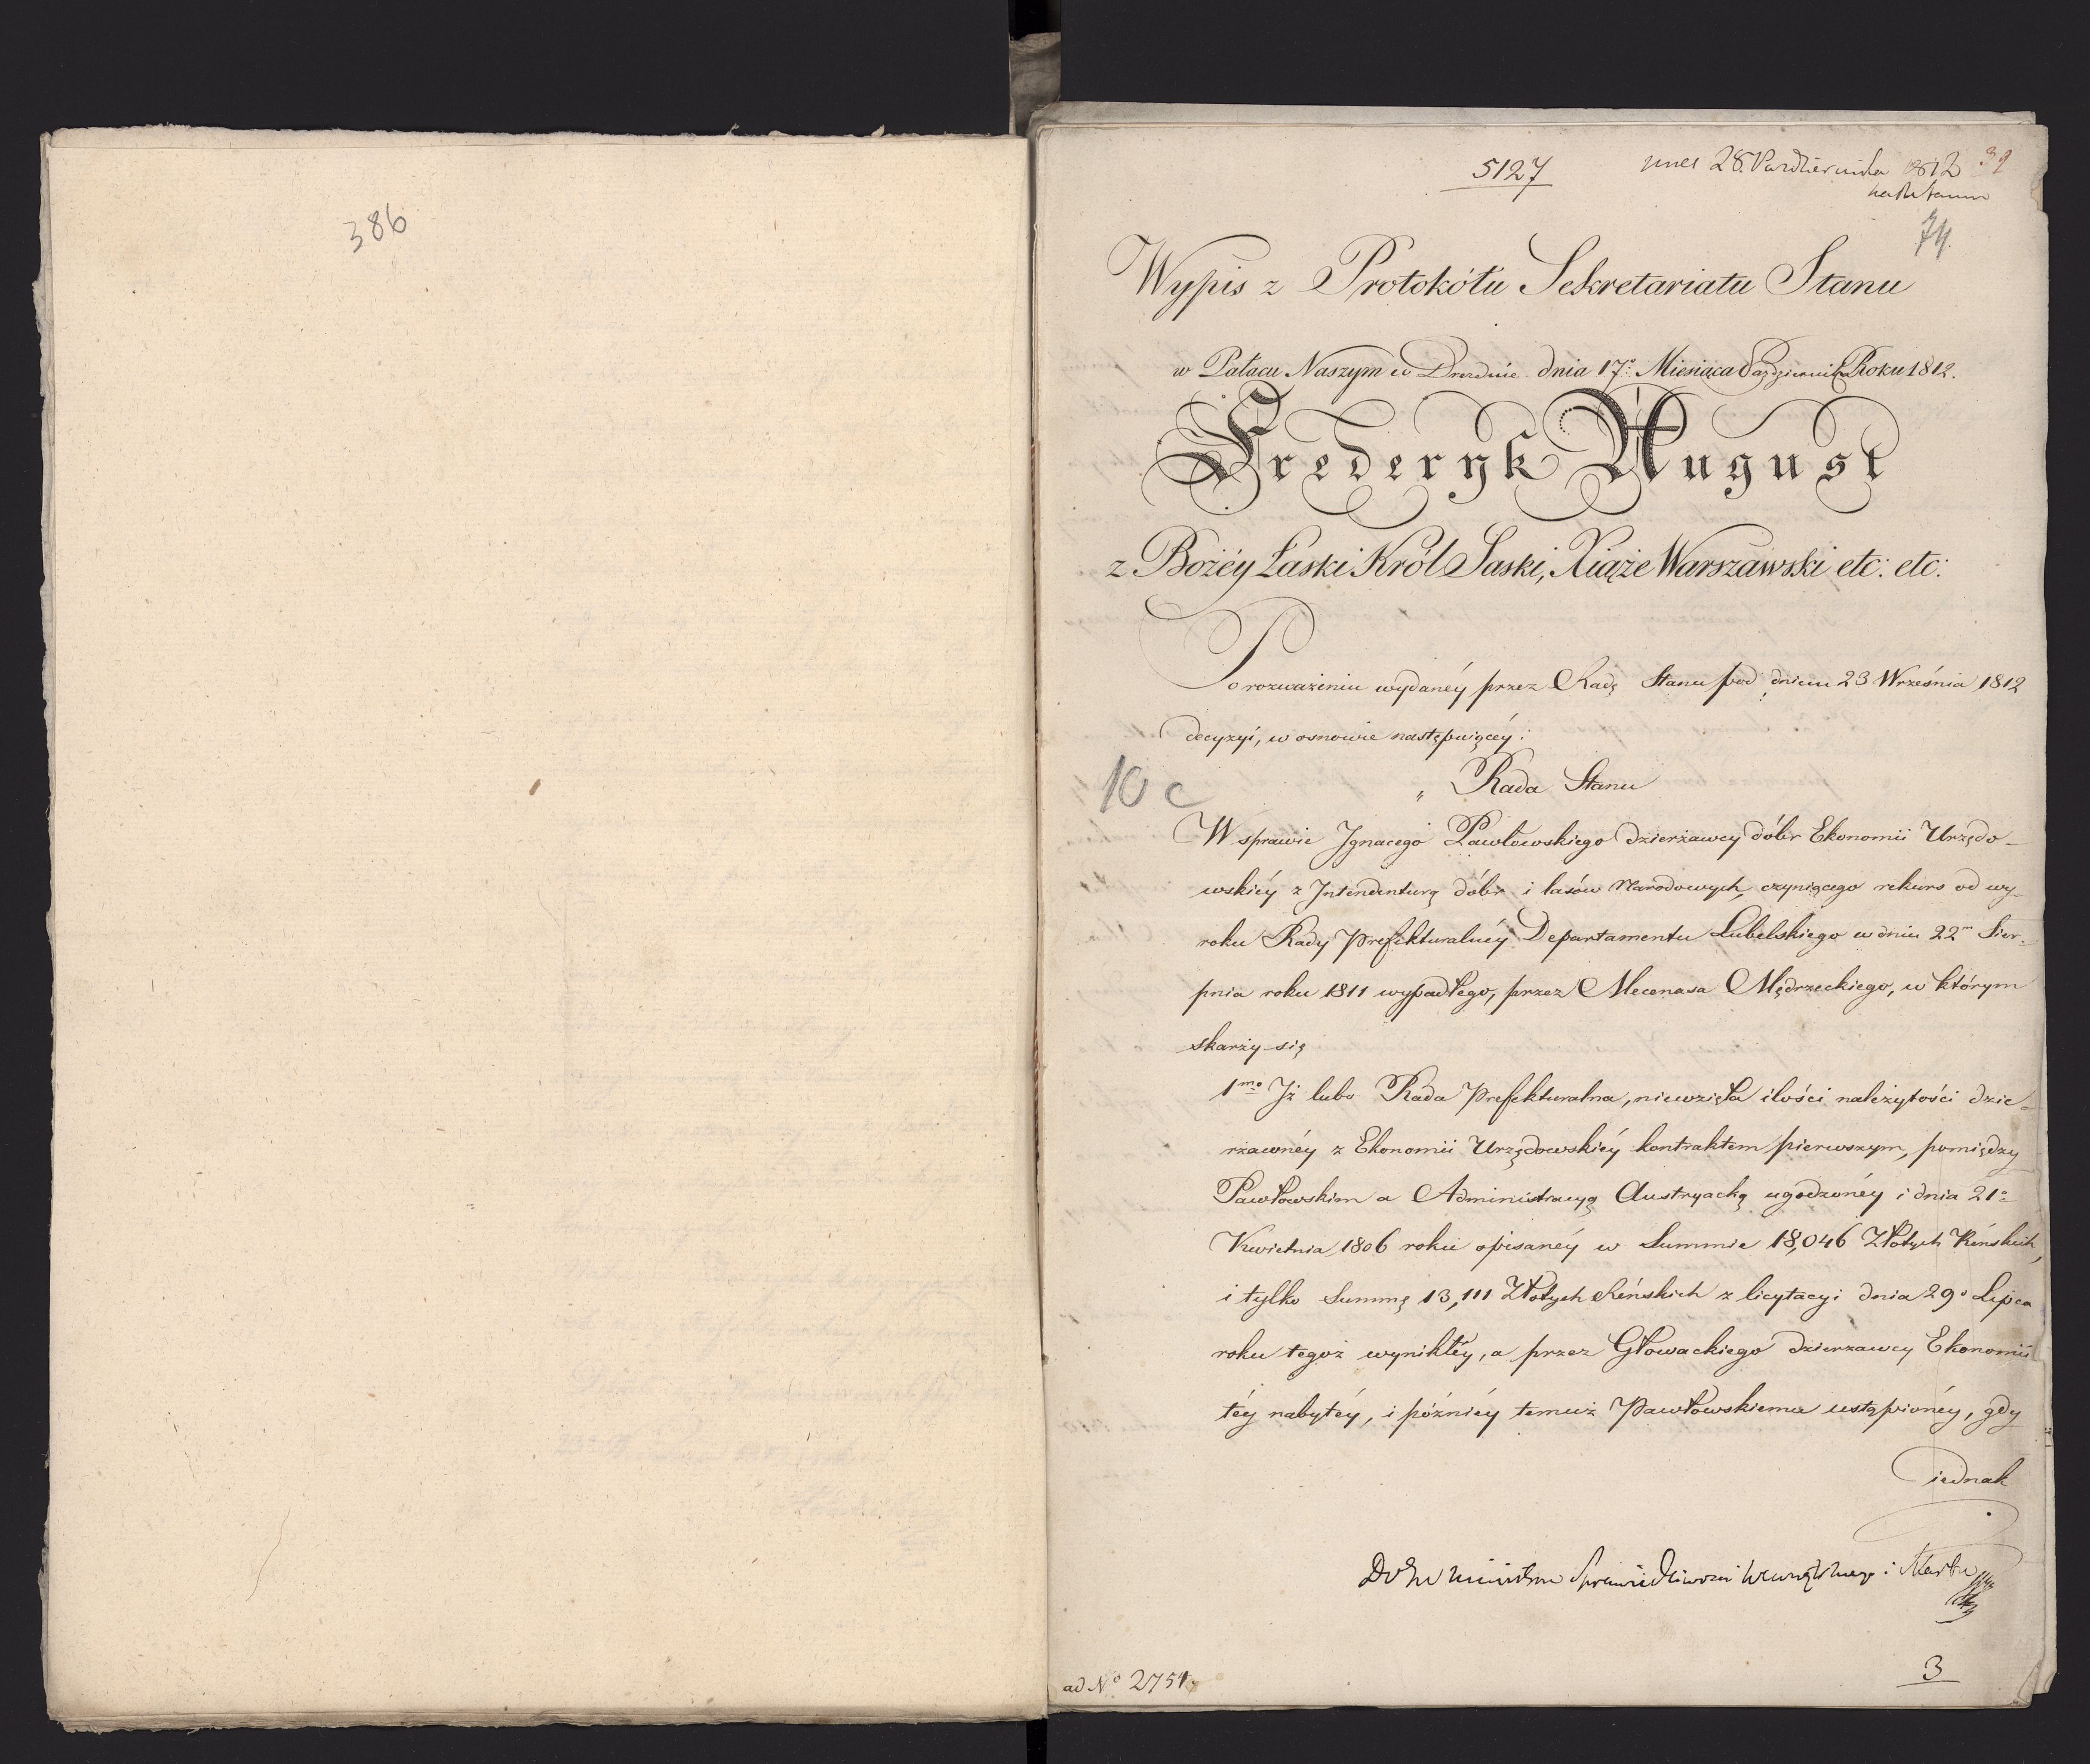 386
5127
28. Października 1812
39
74.
Wypis z Protokółu Sekretariatu Stanu
w Pałacu Naszym w Dreznie dnia 17º Miesiąca Października Roku 1812.
Frederyk August
z Bożéy Łaski Król Saski, Xiąże Warszawski etc: etc:
Po rozważeniu wydanéy przez Radę Stanu pod dniem 23 Września 1812
decyzyi, w osnowie następuiącéy:
10 c
„ Rada Stanu
W sprawie Jgnacego Pawłowskiego dzierżawcy dóbr Ekonomii Urzędo-
wskiéy z Jntendenturą dóbr i lasów Narodowych, czyniącego rekurs od wy-
roku Rady Prefekturalnéy Departamentu Lubelskiego w dniu 22m Sier-
pnia roku 1811 wypadłego, przez Mecenasa Mędrzeckiego, w którym
skarży się
1mo Jż lubo Rada Prefekturalna, niewzięła ilości należytości dzie-
rżawnéy z Ekonomii Urzędowskiéy kontraktem pierwszym, pomiędzy
Pawłowskim a Administracyą Austryacką ugodzonéy i dnia 21º
Kwietnia 1806 roku opisanéy w Summie 18,046 Złotych Reńskich,
i tylko Summę 13,111 Złotych Reńskich z licytacyi dnia 29º Lipca
roku tegoż wynikłéy, a przez Głowackiego dzierzawcy Ekonomii
téy nabytéy, i późniéy temuż Pawłowskiemu ustąpionéy, gdy
iednak
Do Ministra Sprawiedliwości
ad Nº 2751.
3